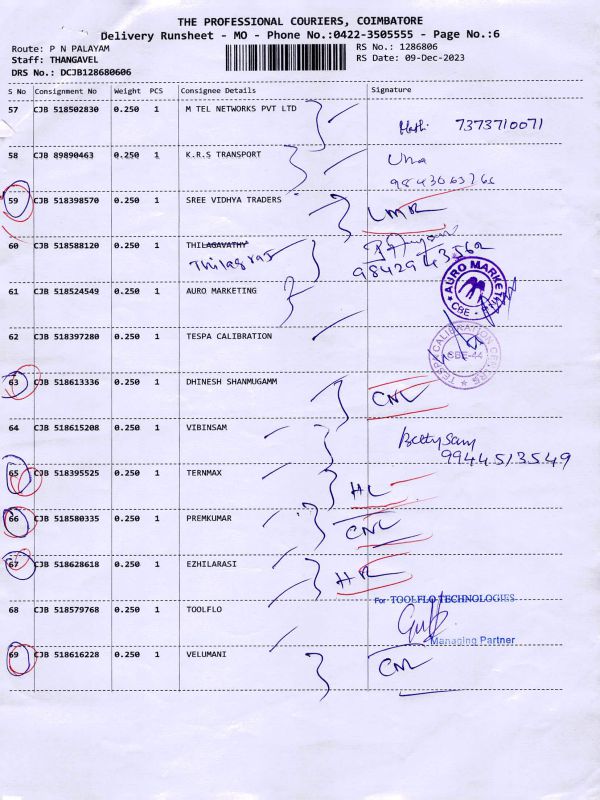 THE PROFESSIONAL COURIERS, COIMBATORE
Delivery Runsheet - MO - Phone No.:0422-3505555 - Page No.:6
Route: P N PALAYAM
RS No.: 1286806
Staff: THANGAVEL
RS Date: 09-Dec-2023
DRS No.: DCJB128680606
S No Consignment No Weight PCS Consignee Details Signature
57 CJB 518502830 0.250 1 M TEL NETWORKS PVT LTD
7373710071
58 CJB 89890463 0.250 1 K.R.S TRANSPORT
Uma
59 CJB 518398570 0.250 1 SREE VIDHYA TRADERS
60 CJB 518588120 0.250 1 THILAGAVATHY
Thilagraj
98429 43562
61 CJB 518524549 0.250 1 AURO MARKETING
AURO MARKETING
CBE
62 CJB 518397280 0.250 1 TESPA CALIBRATION
TESPA CALIBRATION CENTRE
CBE-44
63 CJB 518613336 0.250 1 DHINESH SHANMUGAMM
CNL
64 CJB 518615208 0.250 1 VIBINSAM
9944513549
65 CJB 518395525 0.250 1 TERNMAX
HL
66 CJB 518580335 0.250 1 PREMKUMAR
CNL
67 CJB 518628618 0.250 1 EZHILARASI
HR
68 CJB 518579768 0.250 1 TOOLFLO
For TOOLFLO TECHNOLOGIES
Managing Partner
69 CJB 518616228 0.250 1 VELUMANI
CNL